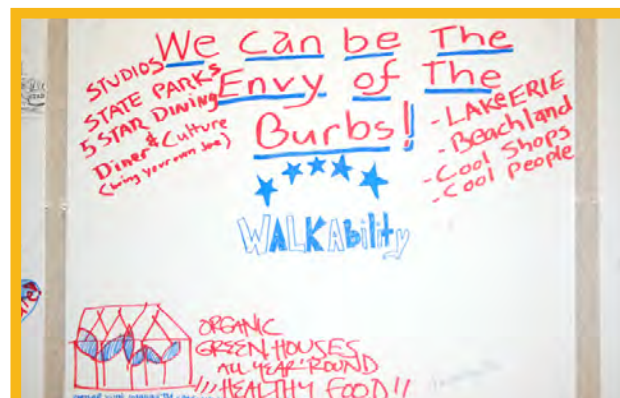 We Can be The
Envy of The
Burbs!
STUDIOS
STATE PARKS
5 STAR DINING
Diner & Culture
(bring your own
- LAKeERIE
- Beachland
- Cool Shops
- Cool People
WALKAbility
ORGANIC
GREENHOUSES
ALL YEAR ROUND
HEALTHY FOOD!!